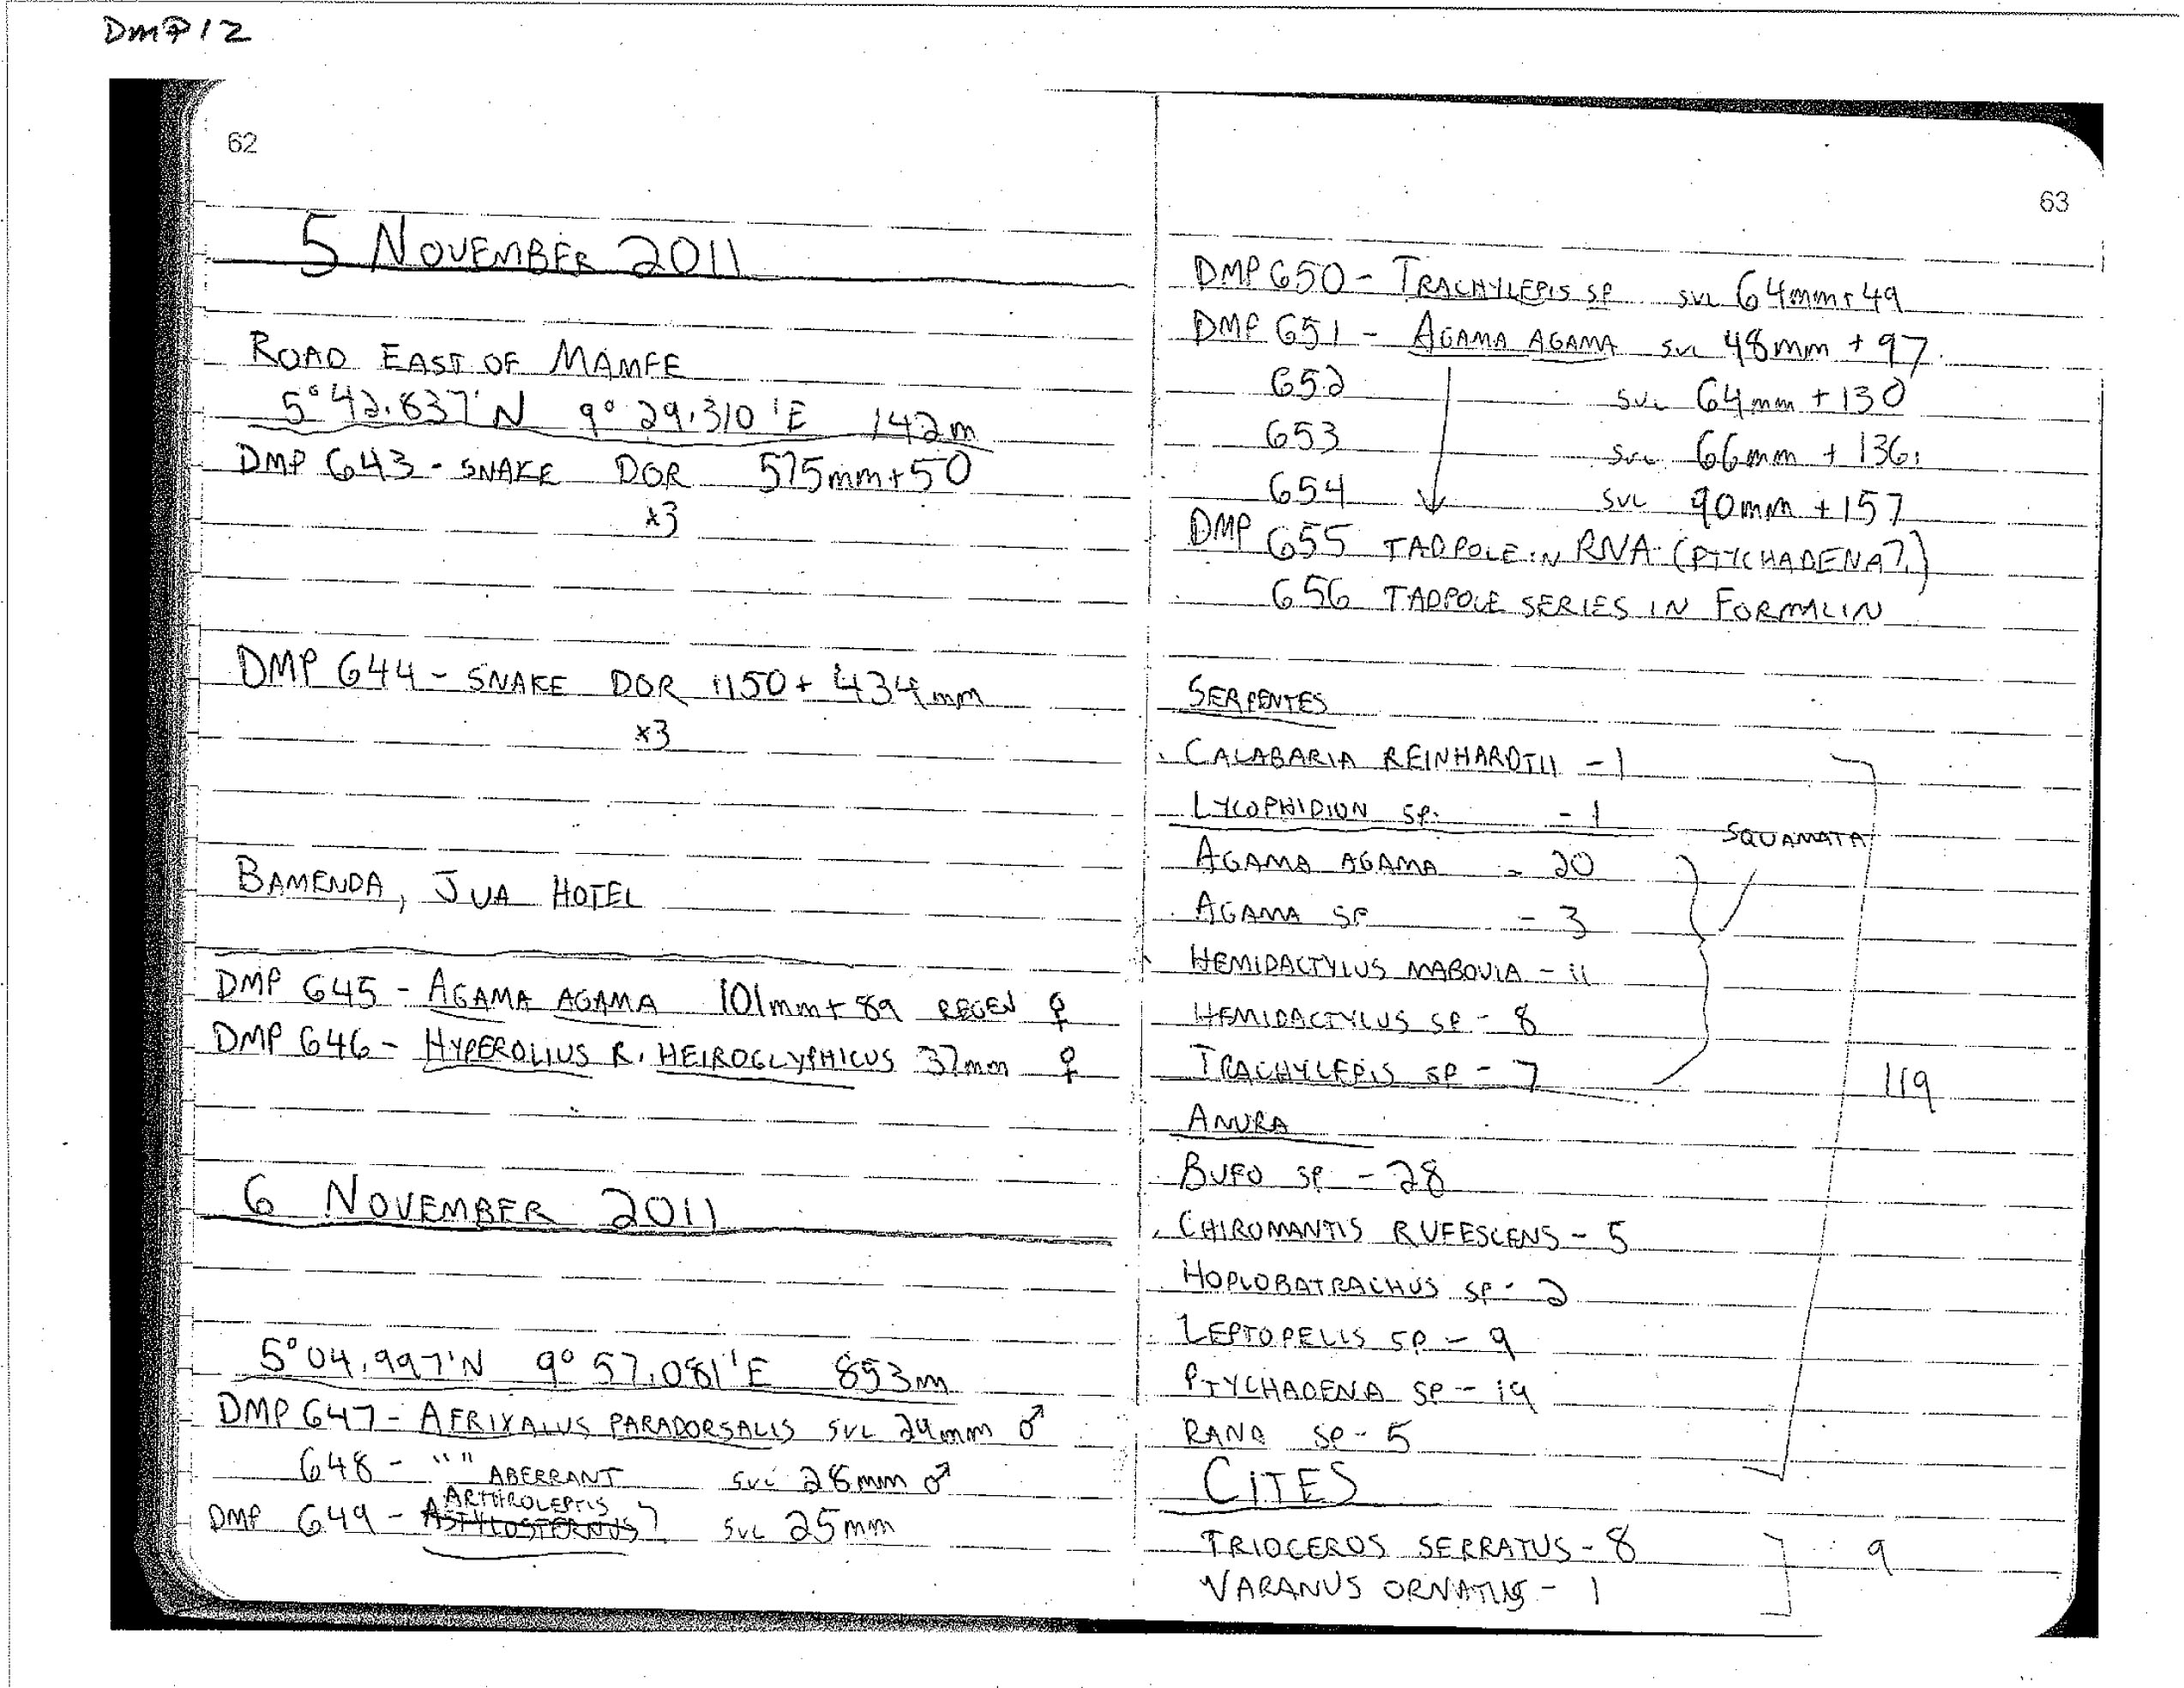 DMP12
62
5 NOVEMBER 2011
ROAD EAST OF MAMFE
5°42.837'N 9°29.310'E 142m
DMP 643 - SNAKE DOR 575mm+50
x3
DMP 644 - SNAKE DOR 1150+ 434mm
x3
BAMENDA, JUA HOTEL
DMP 645 - AGAMA AGAMA 101mm+ 89 REGEN ♀
DMP 646 - HYPEROLIUS R. HEIROGLYPHICUS 37mm ♀
6 NOVEMBER 2011
5°04.997'N 9°57.081'E 853m
DMP 647 - AFRIXALUS PARADORSALIS SVL 29mm ♂
648 - "" ABERRANT SVL 28mm ♂
ARTHROLEPTIS
DMP 649 - ASTYLOSTERNUS? SVL 25mm
63
DMP 650 - TRACHYLEPIS SP SVL 64mm+49
DMP 651 - AGAMA AGAMA SVL 48mm + 97
652 SVL 64mm +130
653 SVL 66mm + 136
654 SVL 90mm +157
DMP 655 TADPOLE IN RNA (PTYCHADENA?)
656 TADPOLE SERIES IN FORMALIN
SERPENTES
CALABARIA REINHARDTII - 1
LYCOPHIDION SP. - 1
SQUAMATA
AGAMA AGAMA - 20
AGAMA SP - 3
HEMIDACTYLUS MABOUIA - 11
HEMIDACTYLUS SP - 8
TRACHYLEPIS SP - 7
119
ANURA
BUFO SP. - 28
CHIROMANTIS RUFESCENS - 5
HOPLOBATRACHUS SP - 2
LEPTOPELIS SP - 9
PTYCHADENA SP - 19
RANA SP - 5
CITES
TRIOCEROS SERRATUS - 8
9
VARANUS ORNATUS - 1